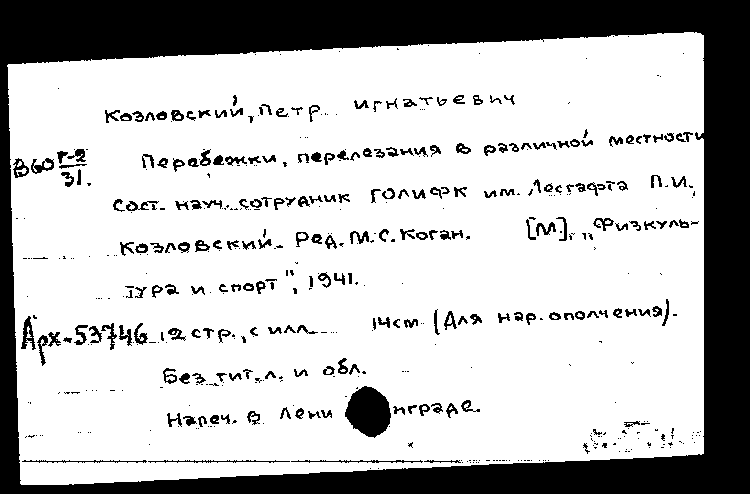 Козловский, Петр Игнатьевич
В60 Г-2/31. Перебежки, перелезания в различной местности
Сост. науч. сотрудник ГОЛИФК им. Лесгафта П.И.
Козловский. Ред. М.С. Коган. [М], „Физкуль-
тура и спорт", 1941.
Арх-53746 12 стр., с илл. 14см (Для нар. ополчения).
Без тит. л. и обл.
Напеч. в Лени нграде.